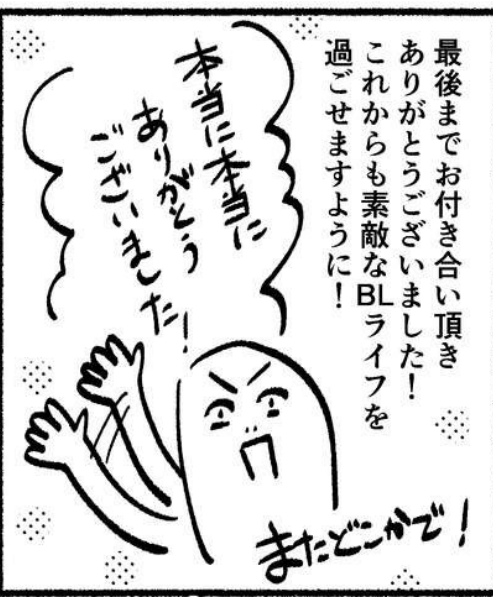 最後までお付き合い頂き
ありがとうございました！
これからも素敵なBLライフを
過ごせますように！
本当に本当に
ありがとう
ございました！
またどこかで！